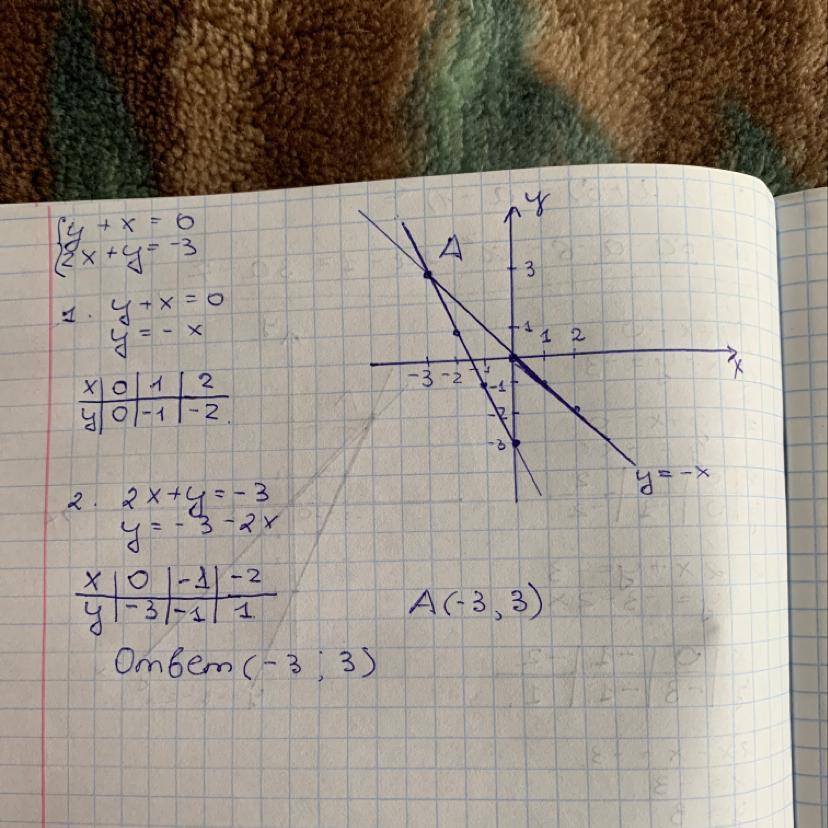 {y + x = 0
{2x + y = -3
1. y + x = 0
y = - x
x | 0 | 1 | 2
y | 0 | -1 | -2
2. 2x + y = -3
y = -3 - 2x
x | 0 | -1 | -2
y | -3 | -1 | 1
Ответ (-3 ; 3)
y
A
3
1
1 2
x
-3 -2 -1
-1
-2
-3
y = -x
A(-3, 3)